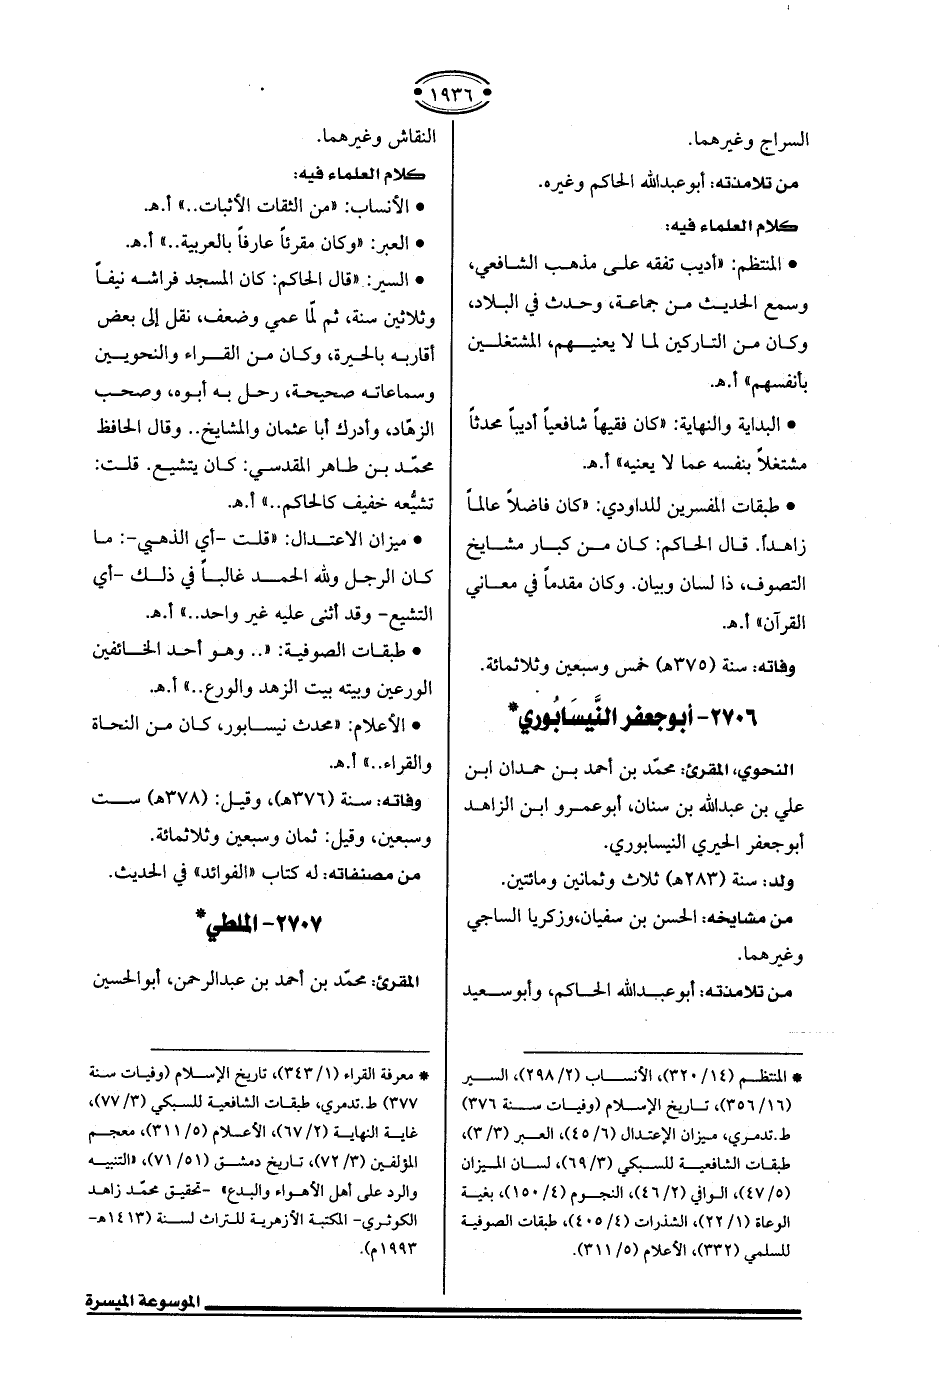 ١٩٣٦
السراج وغيرهما.
من تلامذته: أبو عبدالله الحاكم وغيره.
كلام العلماء فيه:
• المنتظم: «أديب تفقه على مذهب الشافعي،
وسمع الحديث من جماعة، وحدث في البلاد،
وكان من التاركين لما لا يعنيهم، المشتغلين
بأنفسهم» أ.هـ.
• البداية والنهاية: «كان فقيهاً شافعياً أديباً محدثاً
مشتغلاً بنفسه عما لا يعنيه» أ.هـ.
• طبقات المفسرين للداودي: «كان فاضلاً عالماً
زاهداً. قال الحاكم: كان من كبار مشايخ
التصوف، ذا لسان وبيان. وكان مقدماً في معاني
القرآن» أ.هـ.
وفاته: سنة (٣٧٥هـ) خمس وسبعين وثلاثمائة.
٢٧٠٦- أبو جعفر النَّيسَابُوري*
النحوي، المقرئ: محمّد بن أحمد بن حمدان ابن
علي بن عبدالله بن سنان، أبو عمرو ابن الزاهد
أبو جعفر الحيري النيسابوري.
ولد: سنة (٢٨٣هـ) ثلاث وثمانين ومائتين.
من مشايخه: الحسن بن سفيان، وزكريا الساجي
وغيرهما.
من تلامذته: أبو عبدالله الحاكم، وأبو سعيد
* المنتظم (١٤/ ٣٢٠)، الأنساب (٢/ ٢٩٨)، السير
(١٦/ ٣٥٦)، تاريخ الإسلام (وفيات سنة ٣٧٦)
ط.تدمري، ميزان الإعتدال (٦/ ٤٥)، العبر (٣/ ٣)،
طبقات الشافعية للسبكي (٣/ ٦٩)، لسان الميزان
(٥/ ٤٧)، الوافي (٢/ ٤٦)، النجوم (٤/ ١٥٠)، بغية
الوعاة (١/ ٢٢)، الشذرات (٤/ ٤٠٥)، طبقات الصوفية
للسلمي (٣٣٢)، الأعلام (٥/ ٣١١).
النقاش وغيرهما.
كلام العلماء فيه:
• الأنساب: «من الثقات الأثبات..» أ.هـ.
• العبر: «وكان مقرئاً عارفاً بالعربية..» أ.هـ.
• السير: «قال الحاكم: كان المسجد فراشه نيفاً
وثلاثين سنة، ثم لمّا عمي وضعف، نقل إلى بعض
أقاربه بالحيرة، وكان من القراء والنحويين
وسماعاته صحيحة، رحل به أبوه، وصحب
الزهّاد، وأدرك أبا عثمان والمشايخ.. وقال الحافظ
محمّد بن طاهر المقدسي: كان يتشيع. قلت:
تشيُّعه خفيف كالحاكم..» أ.هـ.
• ميزان الاعتدال: «قلت -أي الذهبي-: ما
كان الرجل ولله الحمد غالباً في ذلك -أي
التشيع- وقد أثنى عليه غير واحد..» أ.هـ.
• طبقات الصوفية: «.. وهو أحد الخائفين
الورعين وبيته بيت الزهد والورع..» أ.هـ.
• الأعلام: «محدث نيسابور، كان من النحاة
والقراء..» أ.هـ.
وفاته: سنة (٣٧٦هـ)، وقيل: (٣٧٨هـ) ست
وسبعين، وقيل: ثمان وسبعين وثلاثمائة.
من مصنفاته: له كتاب «الفوائد» في الحديث.
٢٧٠٧- الملطي*
المقرئ: محمّد بن أحمد بن عبدالرحمن، أبو الحسين
* معرفة القراء (١/ ٣٤٣)، تاريخ الإسلام (وفيات سنة
٣٧٧) ط.تدمري، طبقات الشافعية للسبكي (٣/ ٧٧)،
غاية النهاية (٢/ ٦٧)، الأعلام (٥/ ٣١١)، معجم
المؤلفين (٣/ ٧٢)، تاريخ دمشق (٥١/ ٧١)، «التنبيه
والرد على أهل الأهواء والبدع» -تحقيق محمّد زاهد
الكوثري- المكتبة الأزهرية للتراث لسنة (١٤١٣هـ-
١٩٩٣م).
الموسوعة الميسرة